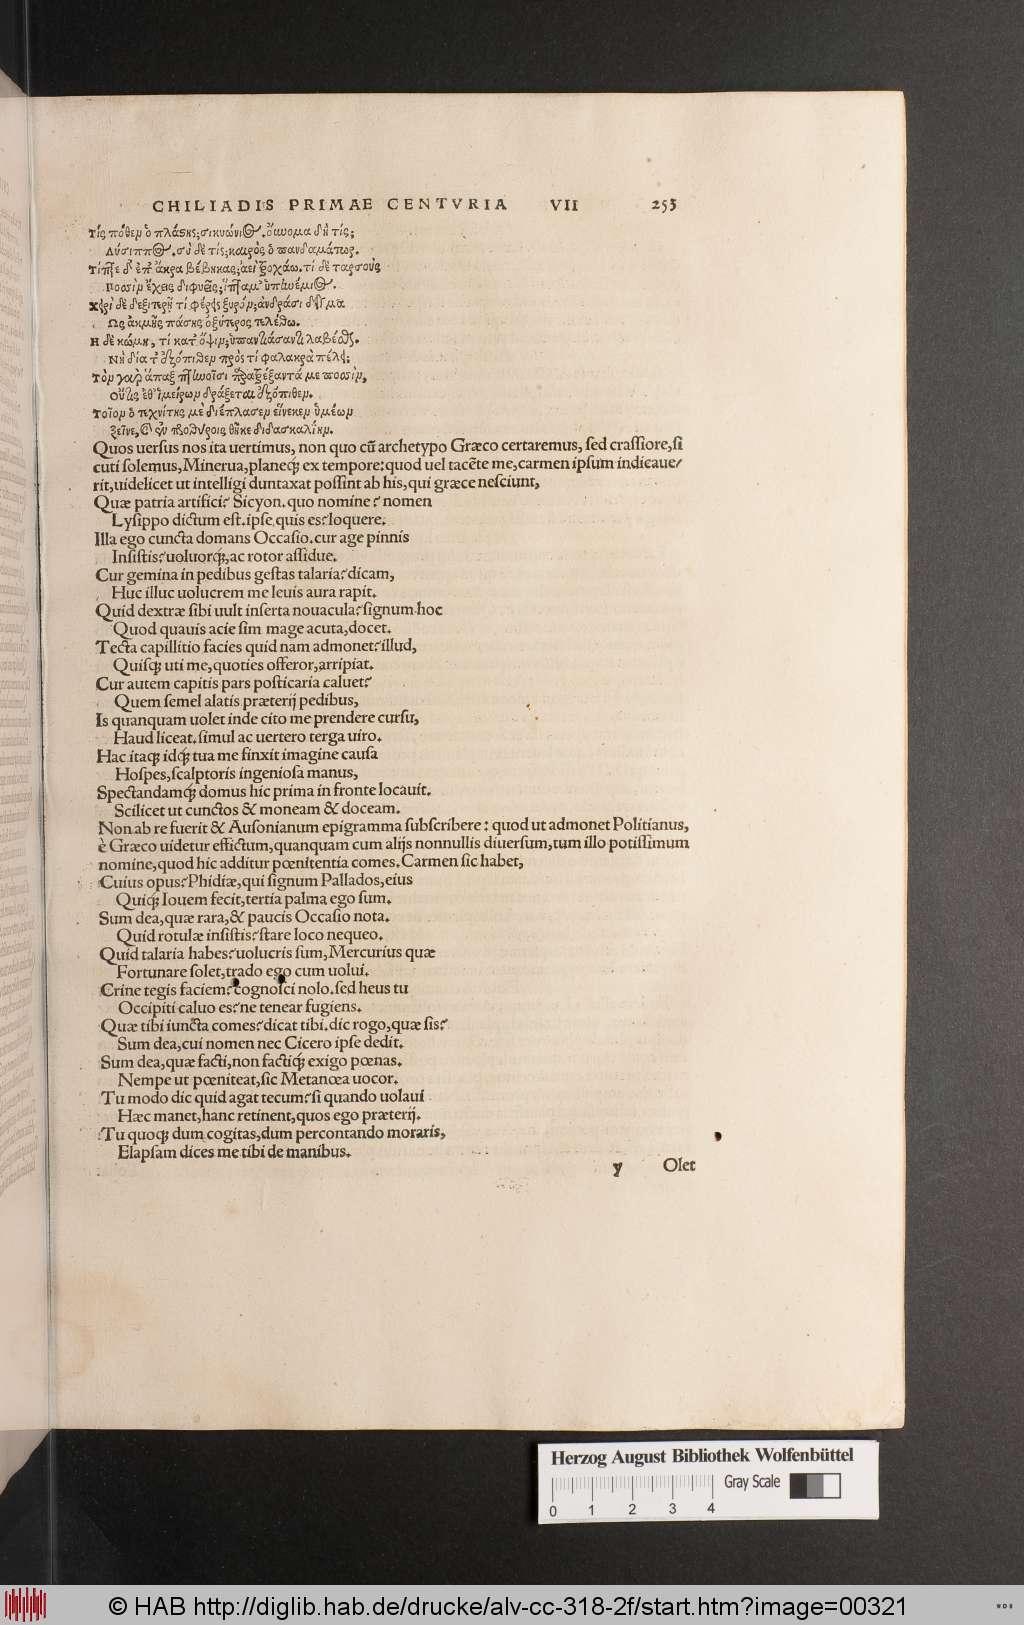 CHILIADIS PRIMAE CENTVRIA VII 253
Τίς πόθεμ ὁ πλάστης; σικυώνιος. ὄυνομα δὴ τίς;
Λύσιππος. σὺ δὲ τίς; καιρὸς ὁ πανδαμάτωρ.
Τίπτε δ' ἐπ' ἄκρα βέβηκας; ἀεὶ τροχάω. τί δὲ ταρσοὺς
Ποοσὶμ ἔχεις διφυεῖς; ἵπταμ' ὑπηνέμιος.
Χειρὶ δὲ δεξιτερῇ τί φέρεις ξυρόμ; ἀνδράσι δεῖγμα
Ως ἀκμῆς πάσης ὀξύτερος τελέθω.
Η δὲ κώμη, τί κατ' ὄψιμ; ὑπαντιάσαντι λαβέσθαι.
Νὴ δία τ' ὀξόπιθεμ πρὸς τί φαλακρὰ πέλει;
Τὸμ γαρ ἅπαξ πτηνοῖσι παραθρέξαντά με ποσσὶμ,
Οὔτις ἔθ' ἱμείρωμ δράξεται ὀξόπιθεμ.
Τοῖομ ὁ τεχνίτης μὲ διέπλασεμ εἵνεκεμ ὑμέωμ
ξεῖνε, καὶ ἐν προθύροις θῆκε διδασκαλίημ.
Quos uersus nos ita uertimus, non quo cũ archetypo Græco certaremus, sed crassiore, si
cuti solemus, Minerua, planeq́; ex tempore: quod uel tacẽte me, carmen ipsum indicaue/
rit, uidelicet ut intelligi duntaxat possint ab his, qui græce nesciunt,
Quæ patria artifici? Sicyon. quo nomine? nomen
Lysippo dictum est. ipse quis es? loquere.
Illa ego cuncta domans Occasio. cur age pinnis
Insistis? uoluorq́;, ac rotor assidue.
Cur gemina in pedibus gestas talaria? dicam,
Huc illuc uolucrem me leuis aura rapit.
Quid dextræ sibi uult inserta nouacula? signum hoc
Quod quauis acie sim mage acuta, docet.
Tecta capillitio facies quid nam admonet? illud,
Quisq; uti me, quoties offeror, arripiat.
Cur autem capitis pars posticaria caluet?
Quem semel alatis præterij pedibus,
Is quanquam uolet inde cito me prendere cursu,
Haud liceat. simul ac uertero terga uiro.
Hac itaq; idq́; tua me finxit imagine causa
Hospes, scalptoris ingeniosa manus,
Spectandamq́; domus hic prima in fronte locauit.
Scilicet ut cunctos & moneam & doceam.
Non ab re fuerit & Ausonianum epigramma subscribere: quod ut admonet Politianus,
è Græco uidetur effictum, quanquam cum alijs nonnullis diuersum, tum illo potissimum
nomine, quod hic additur pœnitentia comes. Carmen sic habet,
Cuius opus? Phidiæ, qui signum Pallados, eius
Quiq; Iouem fecit, tertia palma ego sum.
Sum dea, quæ rara, & paucis Occasio nota.
Quid rotulæ insistis? stare loco nequeo.
Quid talaria habes? uolucris sum, Mercurius quæ
Fortunare solet, trado ego cum uolui.
Crine tegis faciem? cognosci nolo. sed heus tu
Occipiti caluo es? ne tenear fugiens.
Quæ tibi iuncta comes? dicat tibi. dic rogo, quæ sis?
Sum dea, cui nomen nec Cicero ipse dedit.
Sum dea, quæ facti, non factiq́; exigo pœnas.
Nempe ut pœniteat, sic Metanœa uocor.
Tu modo dic quid agat tecum? si quando uolaui
Hæc manet, hanc retinent, quos ego præterij.
Tu quoq; dum cogitas, dum percontando moraris,
Elapsam dices me tibi de manibus.
y Olet
Herzog August Bibliothek Wolfenbüttel
Gray Scale
0 1 2 3 4
© HAB http://diglib.hab.de/drucke/alv-cc-318-2f/start.htm?image=00321